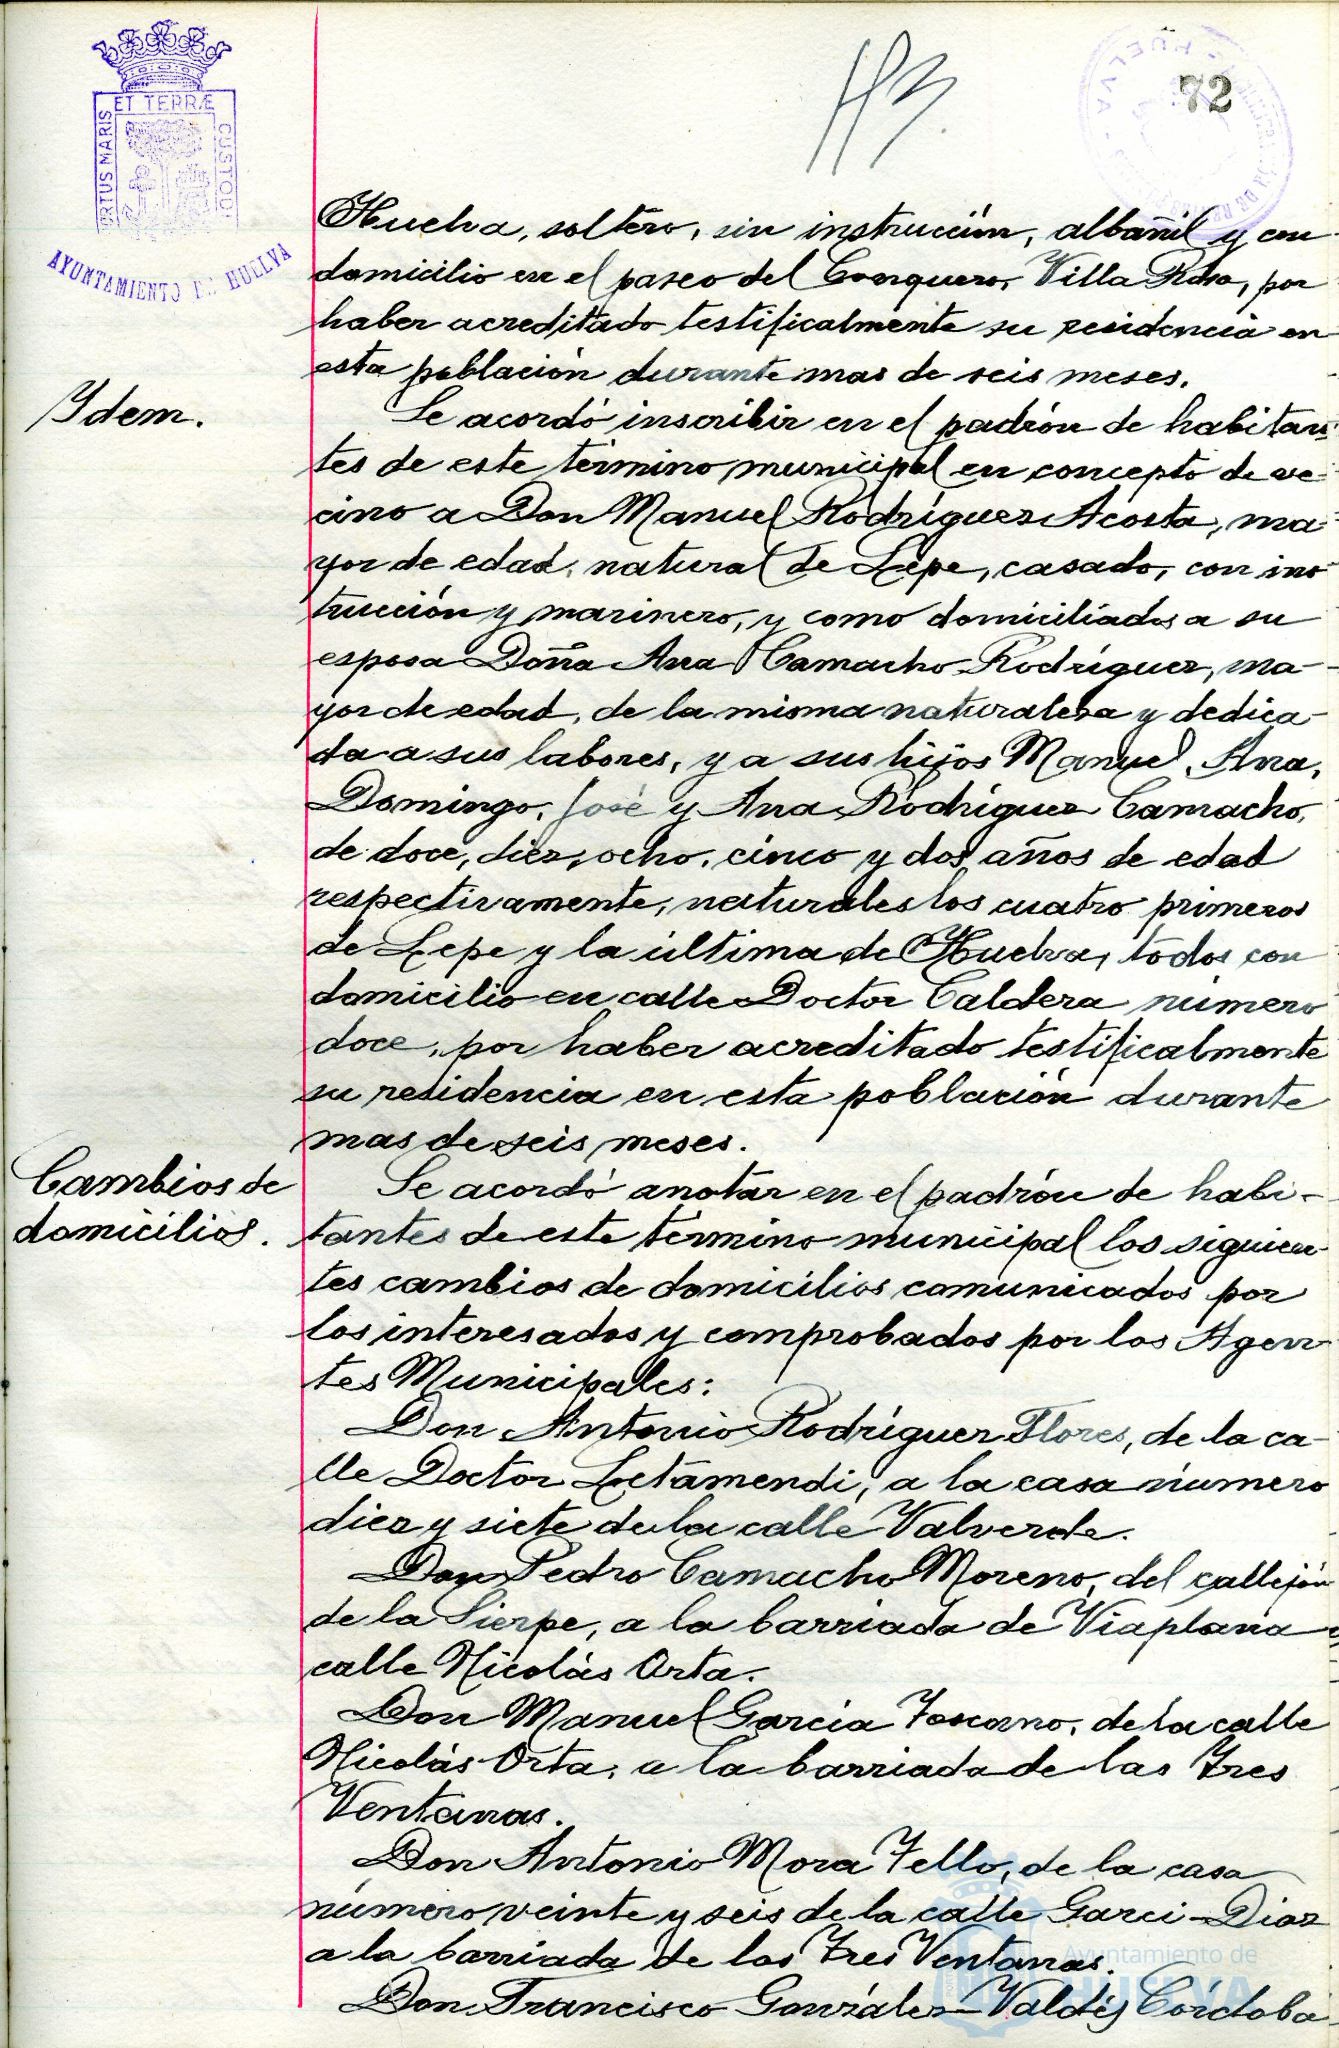 ET TERRÆ
ORTUS MARIS
CUSTODI
AYUNTAMIENTO DE HUELVA
HUELVA
72
Huelva, soltero, sin instrucción, albañil y con
domicilio en el paseo del Conquero, Villa Rosa, por
haber acreditado testificalmente su residencia en
esta población durante mas de seis meses.
Ydem.
Se acordó inscribir en el padrón de habitan-
tes de este término municipal en concepto de ve-
cino a Don Manuel Rodríguez Acosta, ma-
yor de edad, natural de Lepe, casado, con ins-
trucción y marinero, y como domiciliados a su
esposa Doña Ana Camacho Rodríguez, ma-
yor de edad, de la misma naturaleza y dedica-
da a sus labores, y a sus hijos Manuel, Ana,
Domingo, José y Ana Rodríguez Camacho,
de doce, diez, ocho, cinco y dos años de edad
respectivamente, naturales los cuatro primeros
de Lepe y la última de Huelva, todos con
domicilio en calle Doctor Caldera número
doce, por haber acreditado testificalmente
su residencia en esta población durante
mas de seis meses.
Cambios de
domicilios.
Se acordó anotar en el padrón de habi-
tantes de este término municipal los siguien-
tes cambios de domicilios comunicados por
los interesados y comprobados por los Agen-
tes Municipales:
Don Antonio Rodríguez Flores, de la ca-
lle Doctor Letamendi, a la casa número
diez y siete de la calle Valverde.
Don Pedro Camacho Moreno, del callejón
de la Sierpe, a la barriada de Viaplana
calle Nicolás Orta.
Don Manuel García Toscano, de la calle
Nicolás Orta, a la barriada de las Tres
Ventanas.
Don Antonio Mora Tello, de la casa
número veinte y seis de la calle Garci-Diaz
a la barriada de las Tres Ventanas.
Don Francisco González-Valdés Córdoba
Ayuntamiento de
HUELVA